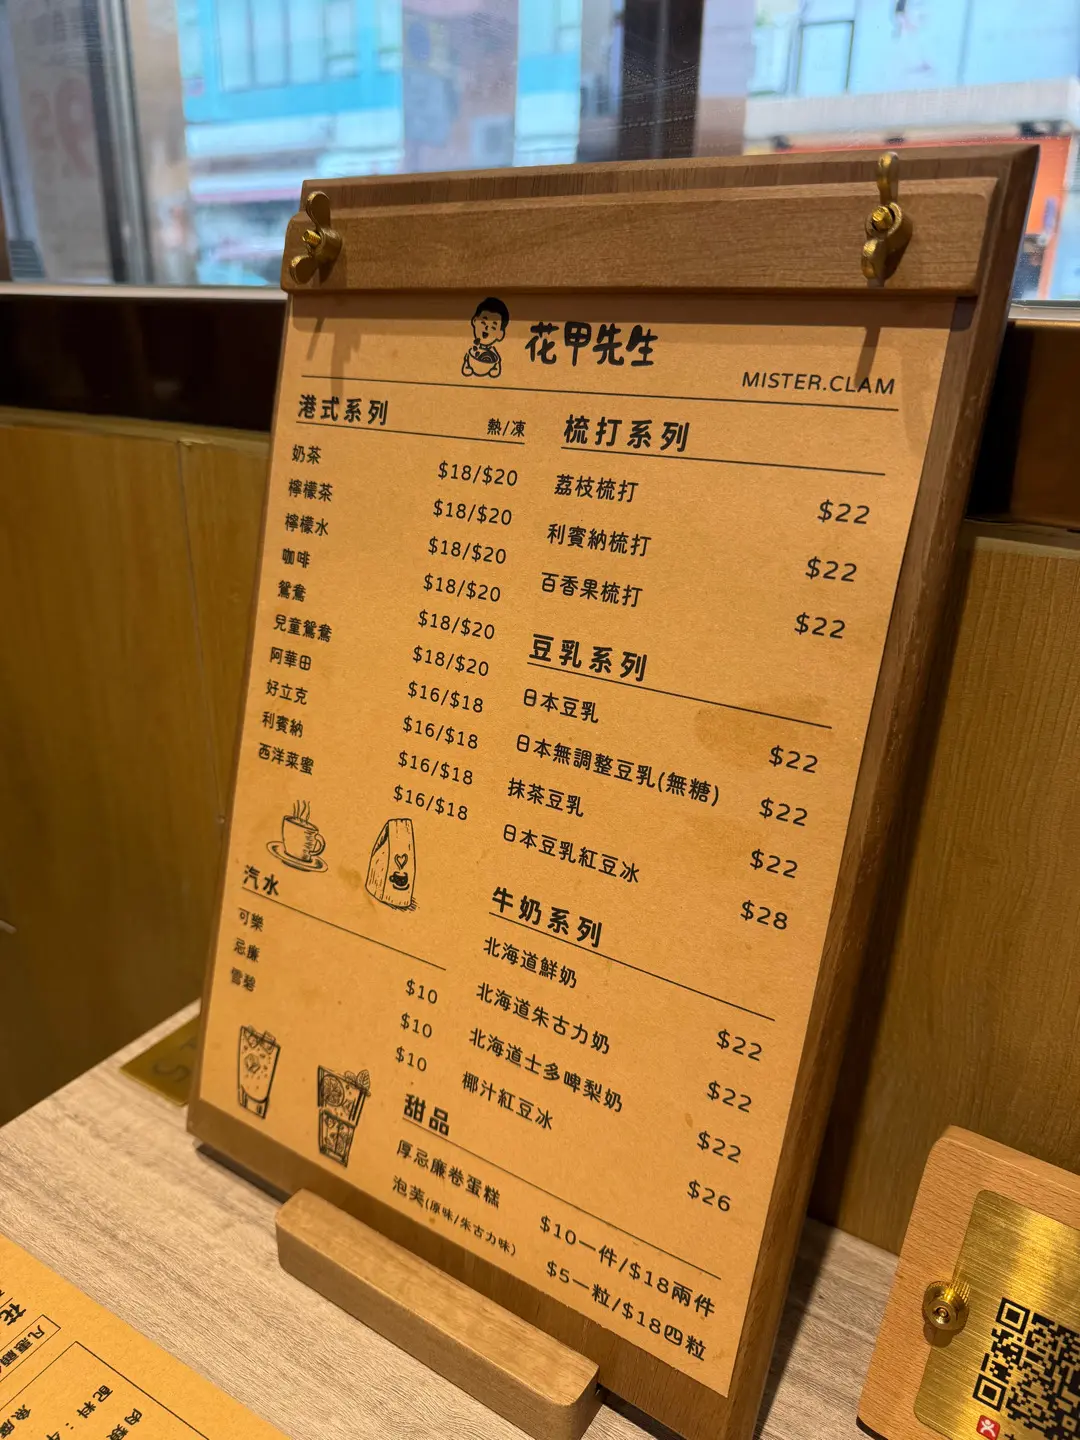 花甲先生
MISTER.CLAM
港式系列 熱/凍
奶茶 $18/$20
檸檬茶 $18/$20
檸檬水 $18/$20
咖啡 $18/$20
鴛鴦 $18/$20
兒童鴛鴦 $18/$20
阿華田 $16/$18
好立克 $16/$18
利賓納 $16/$18
西洋菜蜜 $16/$18
汽水
可樂 $10
忌廉 $10
雪碧 $10
梳打系列
荔枝梳打 $22
利賓納梳打 $22
百香果梳打 $22
豆乳系列
日本豆乳 $22
日本無調整豆乳(無糖) $22
抹茶豆乳 $22
日本豆乳紅豆冰 $28
牛奶系列
北海道鮮奶 $22
北海道朱古力奶 $22
北海道士多啤梨奶 $22
椰汁紅豆冰 $26
甜品
厚忌廉卷蛋糕 $10一件/$18兩件
泡芙(原味/朱古力味) $5一粒/$18四粒
花
凡惠顧
配料：
肉類